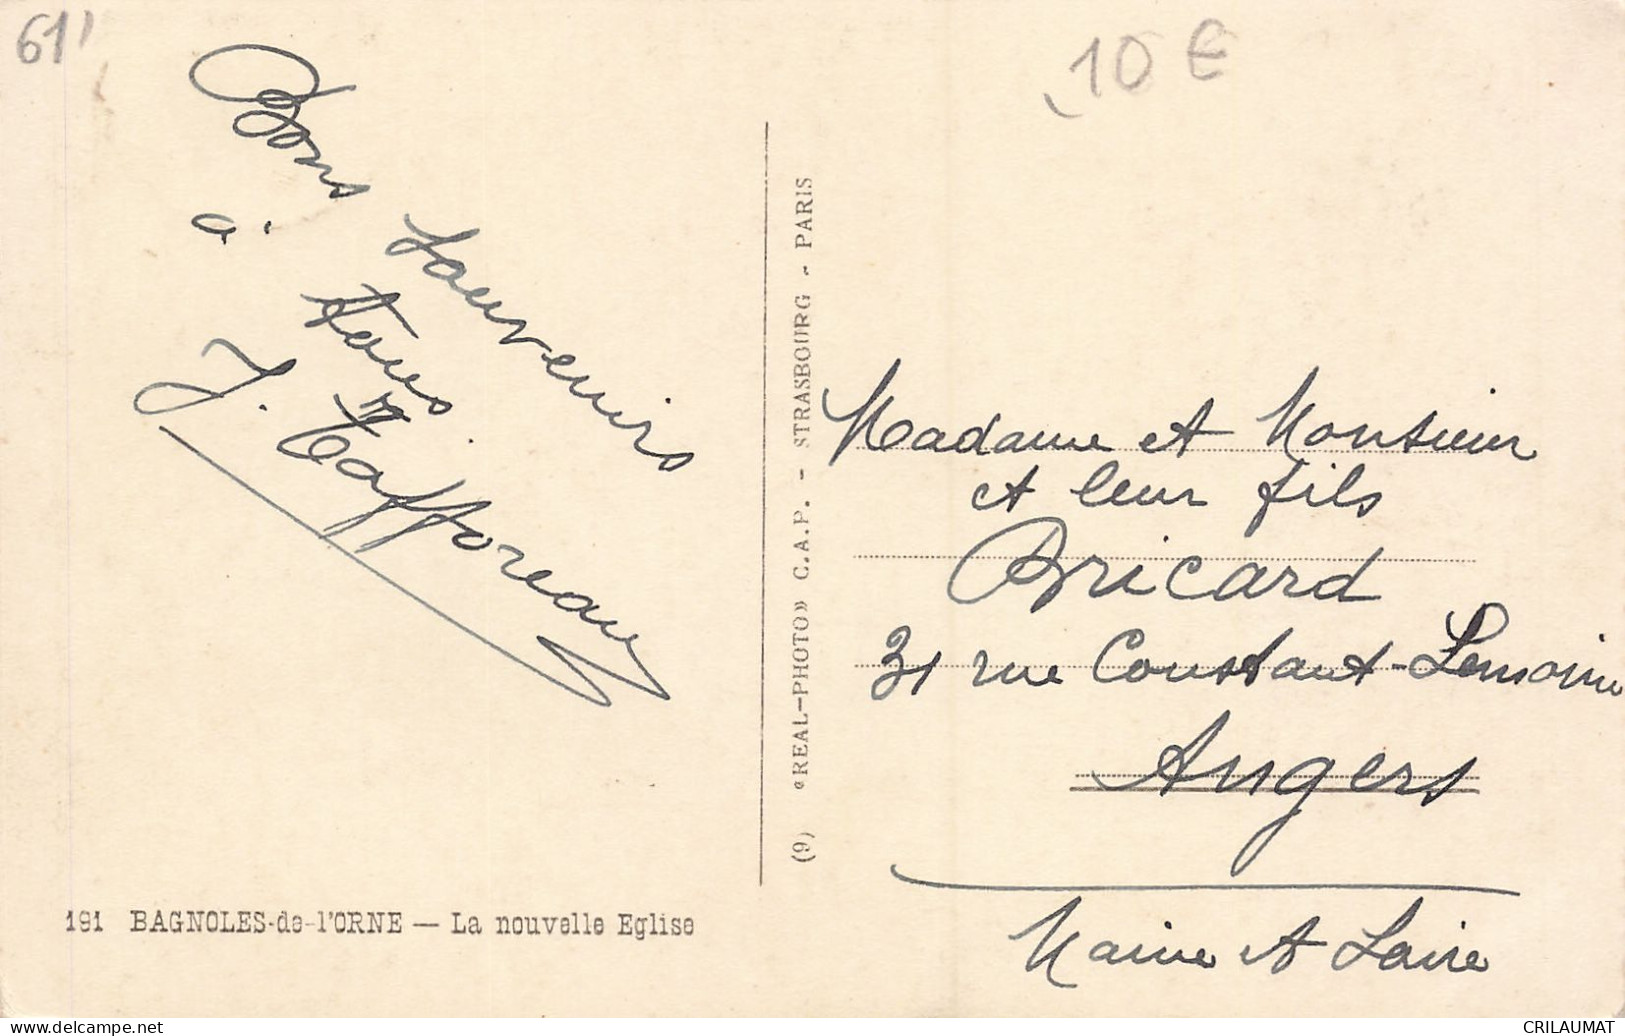 61
10 €
Bons souvenirs
à tous
J. Tafforeau
Madame et Monsieur
et leur fils
Bricard
31 rue Constant-Lemoine
Angers
Maine et Loire
«REAL-PHOTO» C.A.P. - STRASBOURG - PARIS
(9)
191 BAGNOLES-de-l'ORNE — La nouvelle Eglise
CRILAUMAT
www.delcampe.net